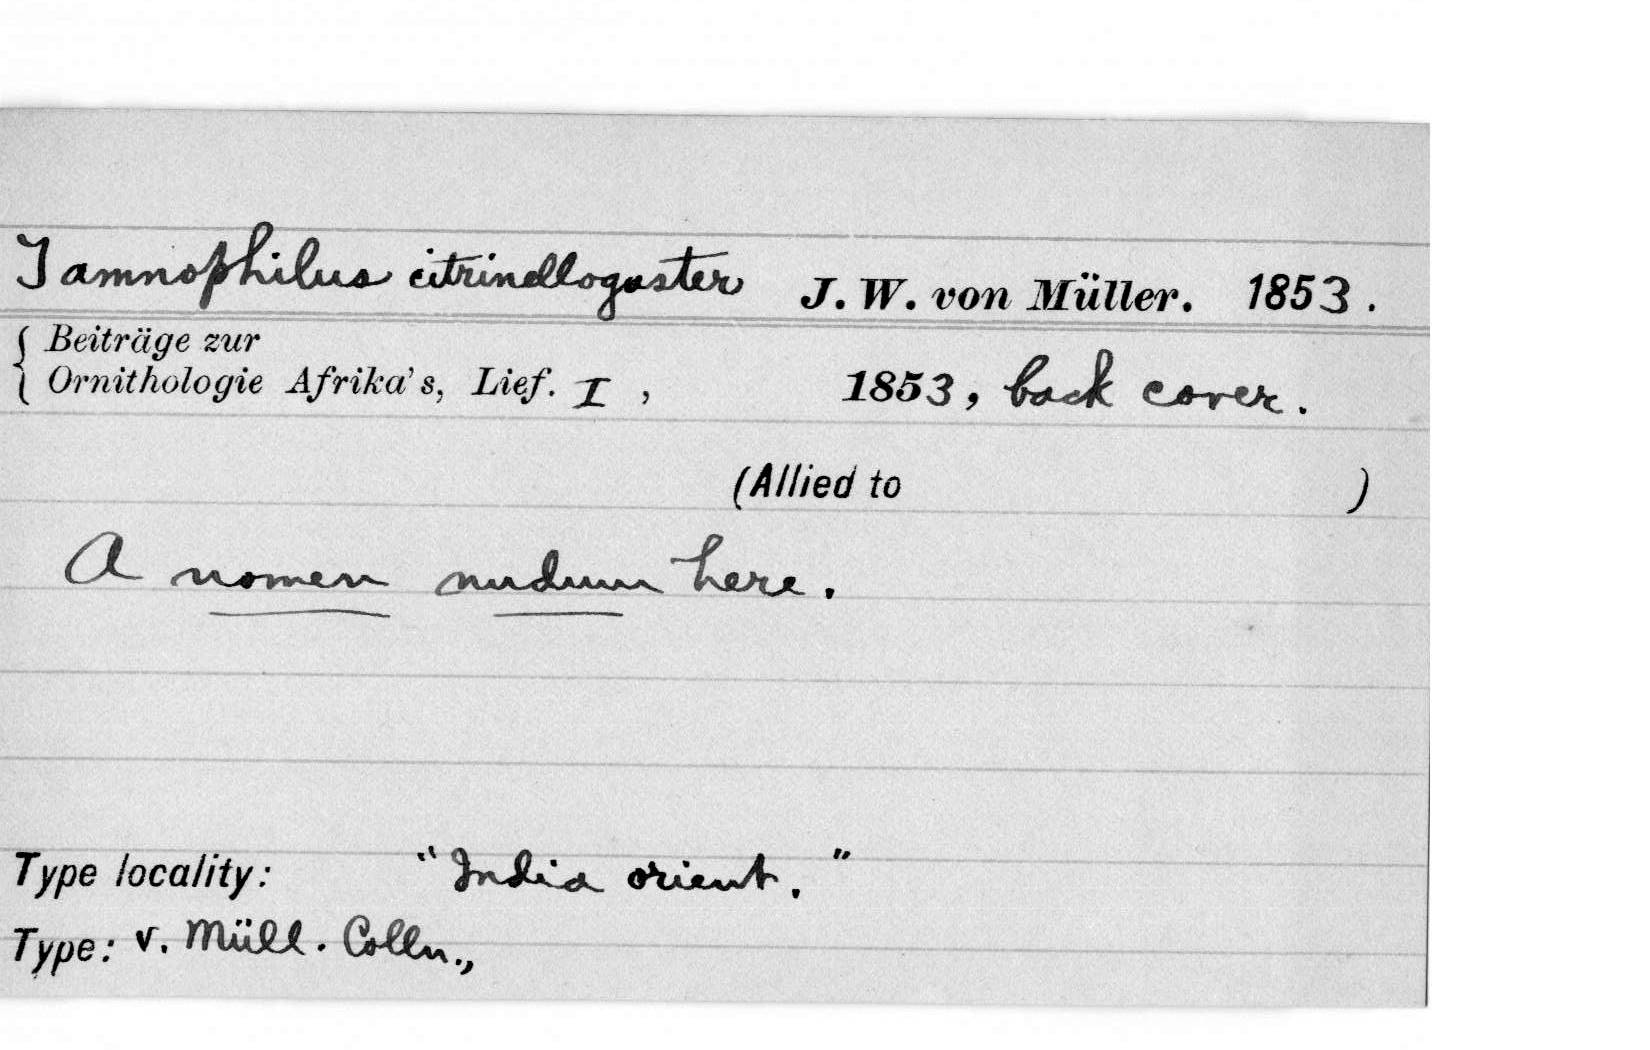 Tamnophilus citrinellogaster J. W. von Müller. 1853.
{ Beiträge zur
Ornithologie Afrika's, Lief. I, 1853, back cover.
(Allied to )
A nomen nudum here.
Type locality: "India orient."
Type: v. Müll. Colln.,